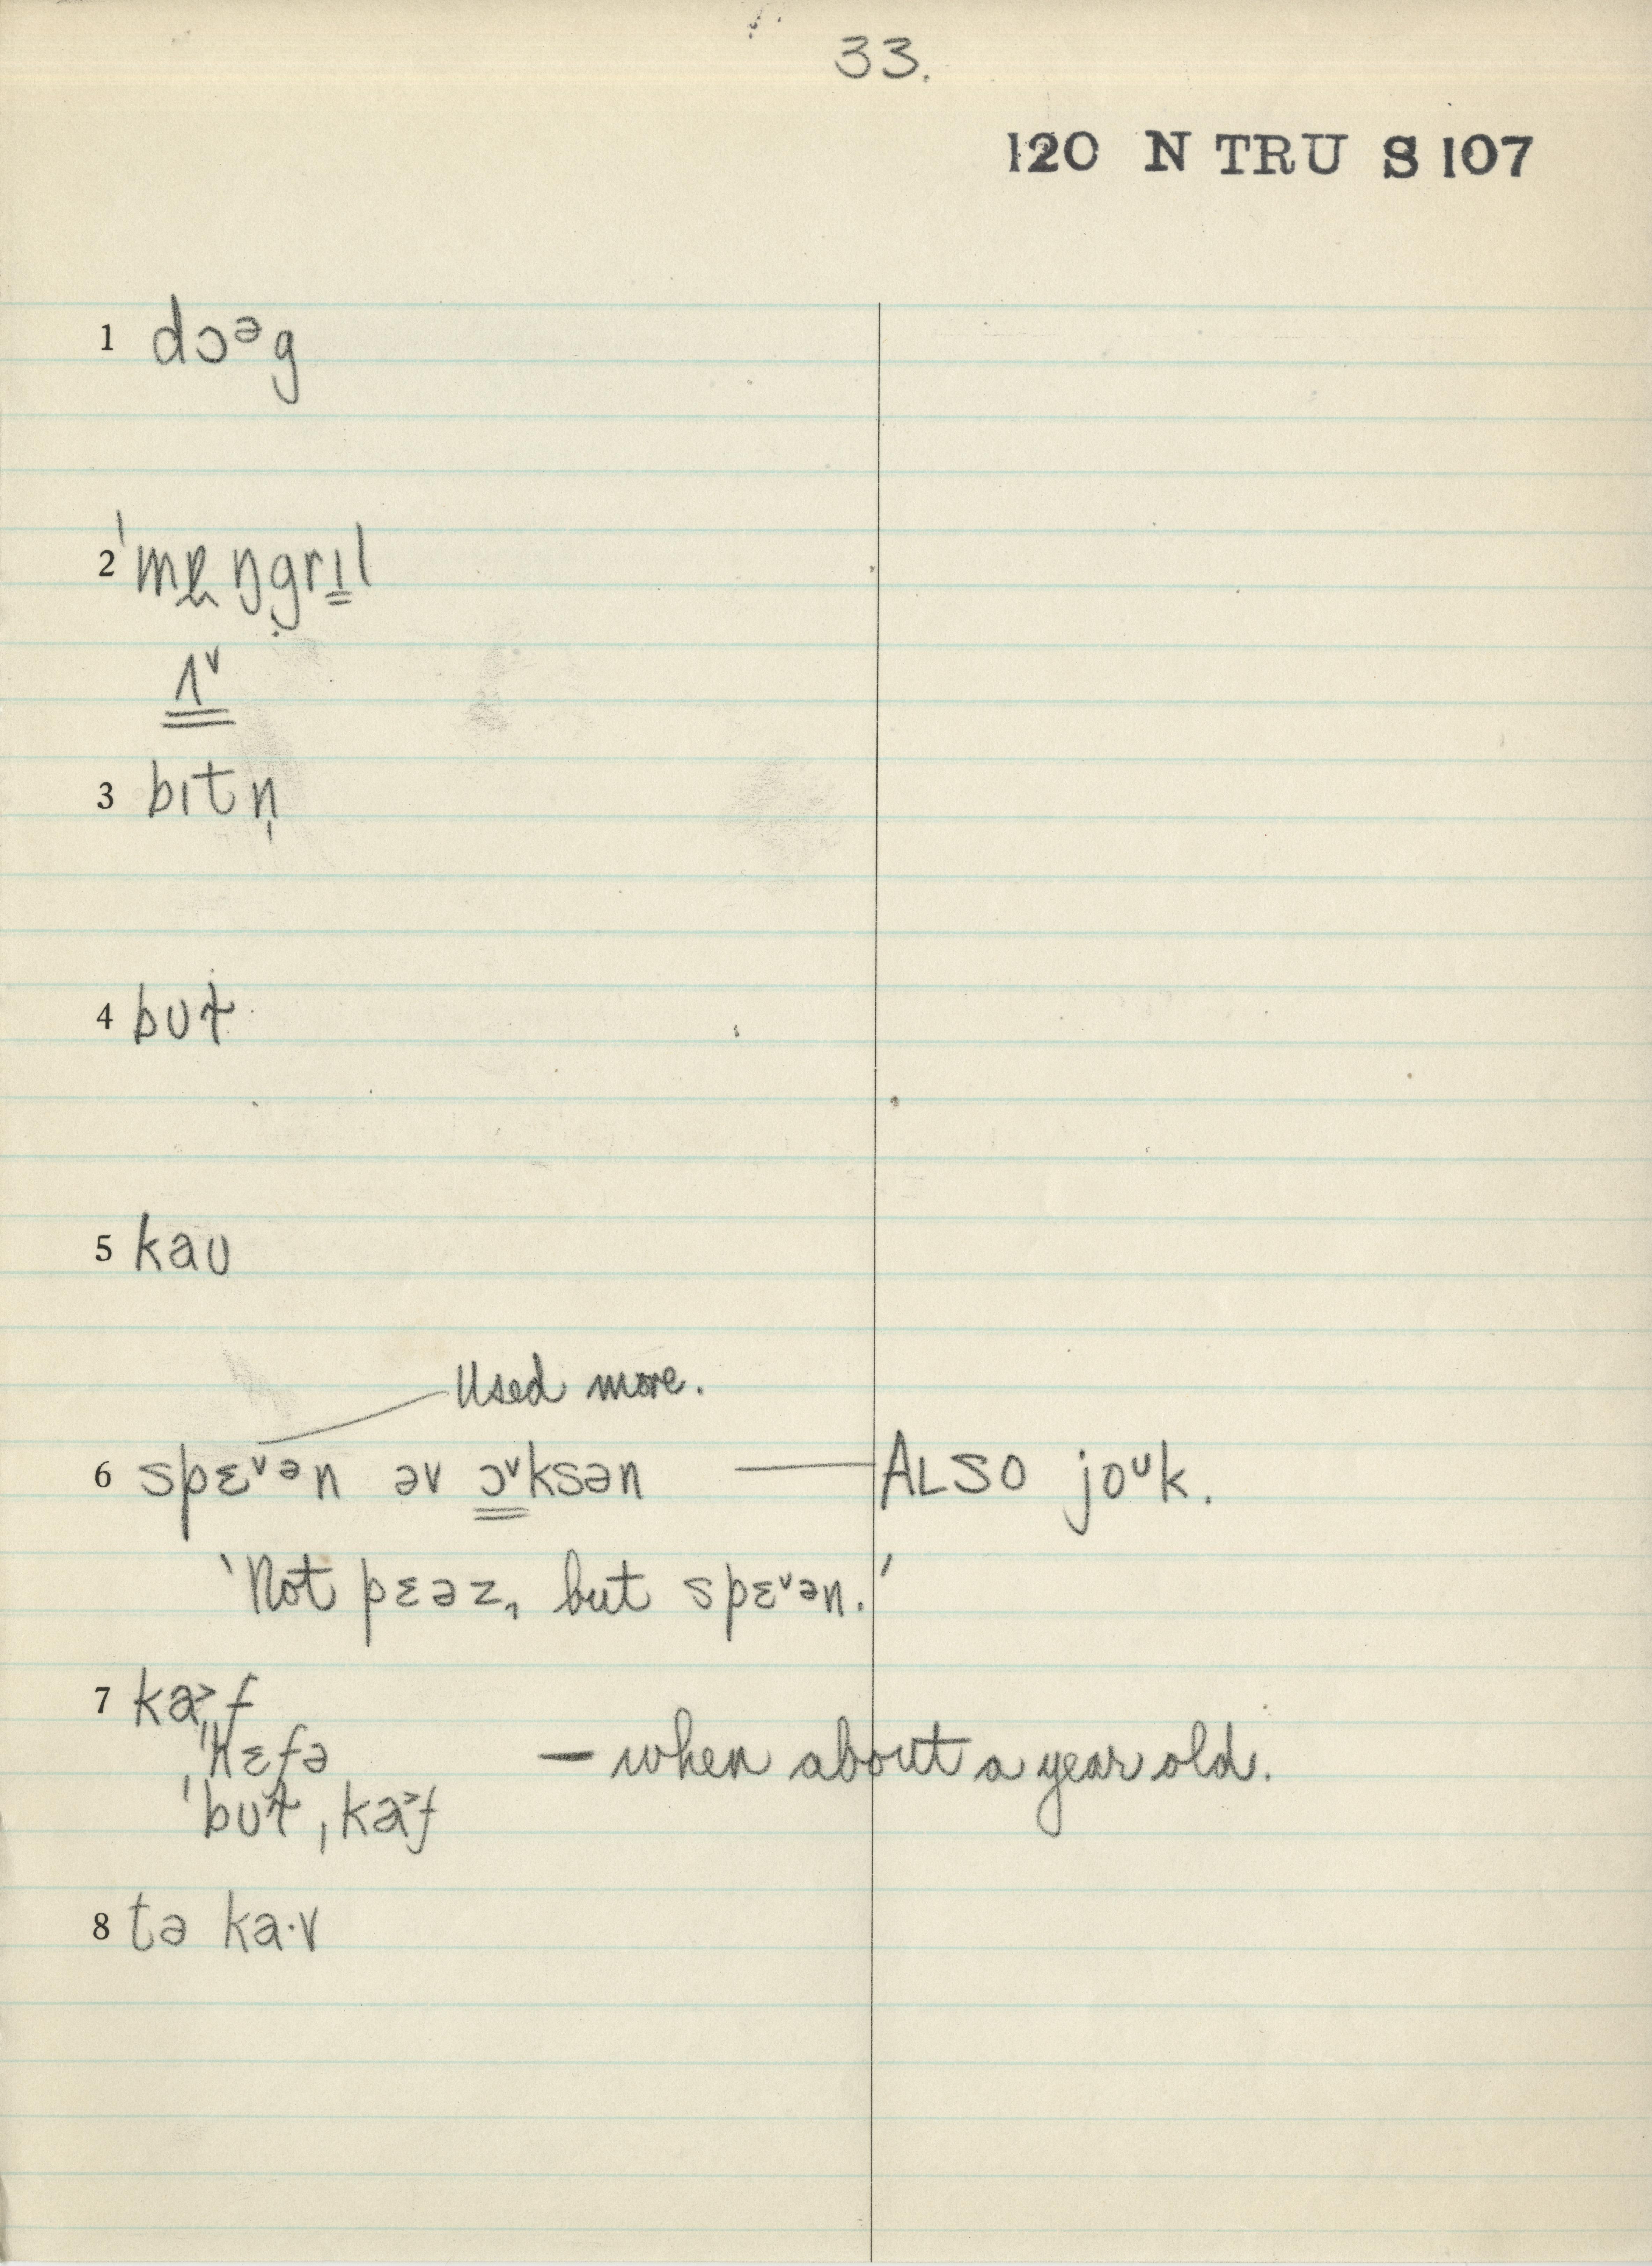 33.
120 N TRU S 107
1 dɔᵊg
2 ˈmɐŋgrɪl
ʌᵛ
3 bɪtn̩
4 bʊt
5 kaʊ
Used more.
6 spɛᵛən əv ɔᵛksən — ALSO joᵘk.
'Not pɛəz, but spɛᵛən.'
7 ka˃f
ˈhɛfə — when about a year old.
ˈbʊtˌka˃f
8 tə ka·v